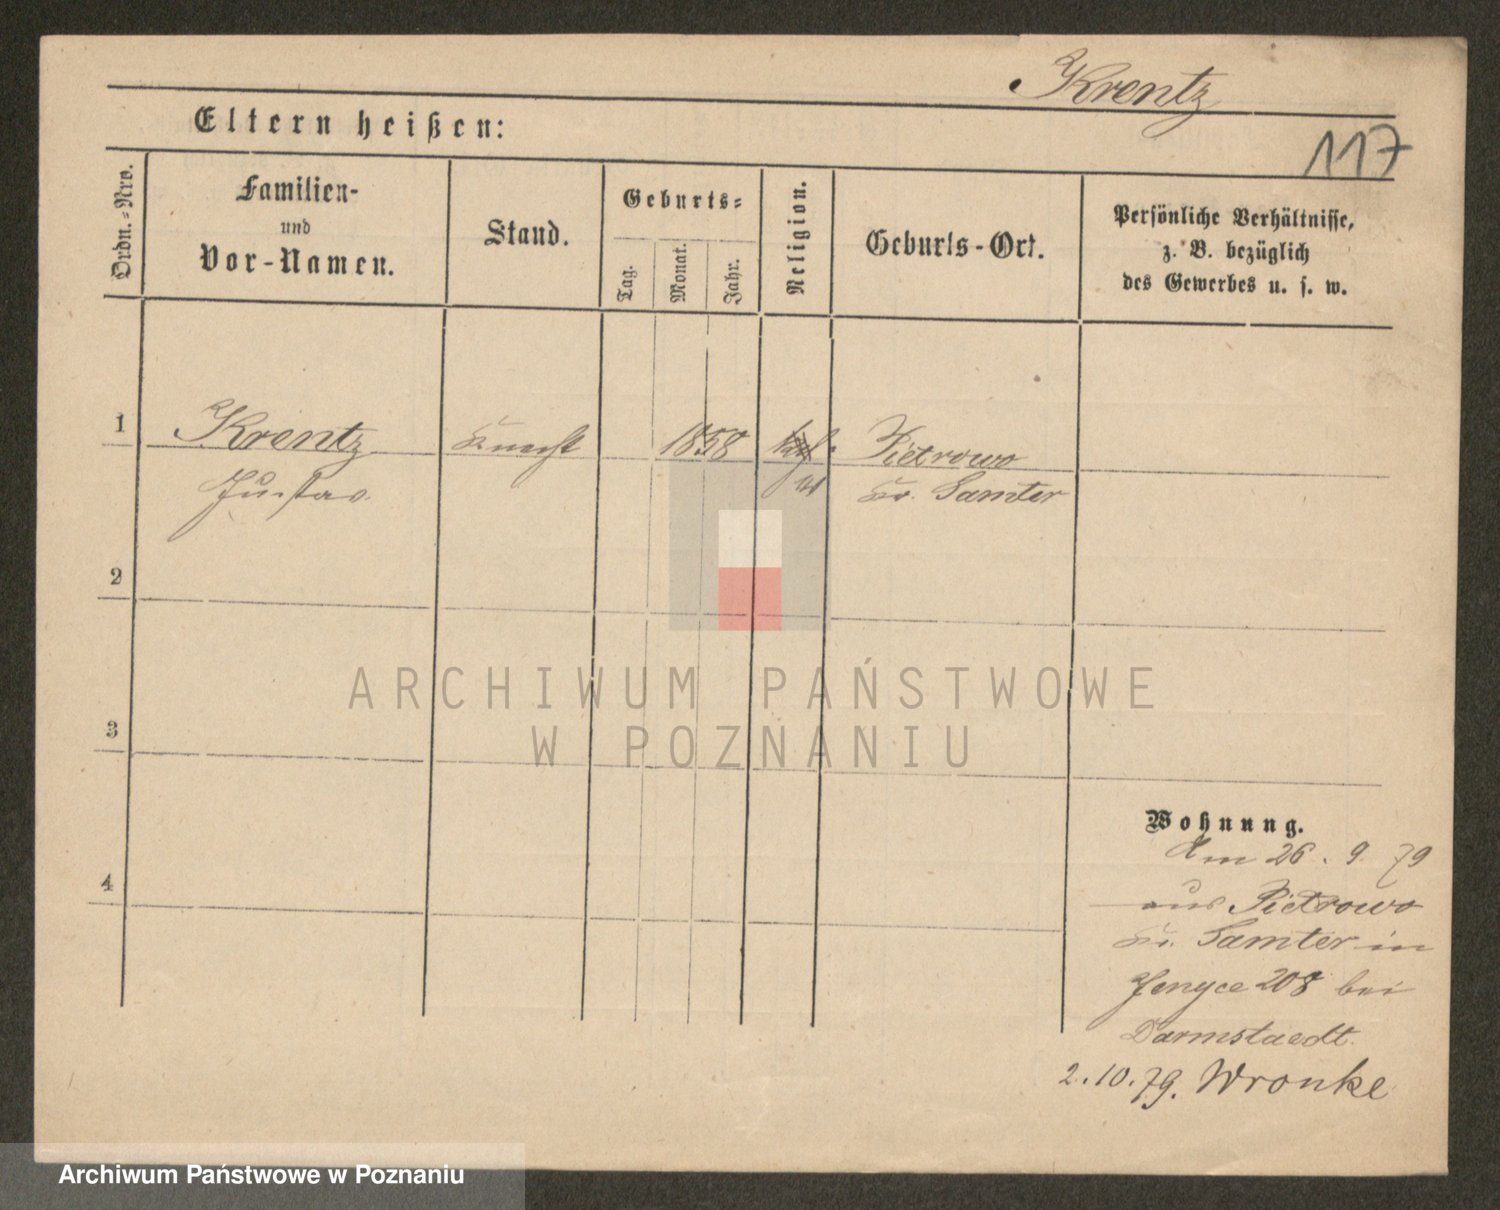 Krentz
117
Eltern heißen:
Ordn.-Nro.
Familien-
und
Vor-Namen.
Stand.
Geburts-
Tag.
Monat.
Jahr.
Religion.
Geburts-Ort.
Persönliche Verhältnisse,
z. B. bezüglich
des Gewerbes u. s. w.
1
Krentz
Knecht
1858
Pietrowo
Gustav.
ev
Kr. Samter
2
3
ARCHIWUM PAŃSTWOWE
W POZNANIU
Wohnung.
Am 26. 9. 79
4
aus Pietrowo
Kr. Samter in
Jenyce 208 bei
Darmstaedt.
2.10.79. Wronke
Archiwum Państwowe w Poznaniu